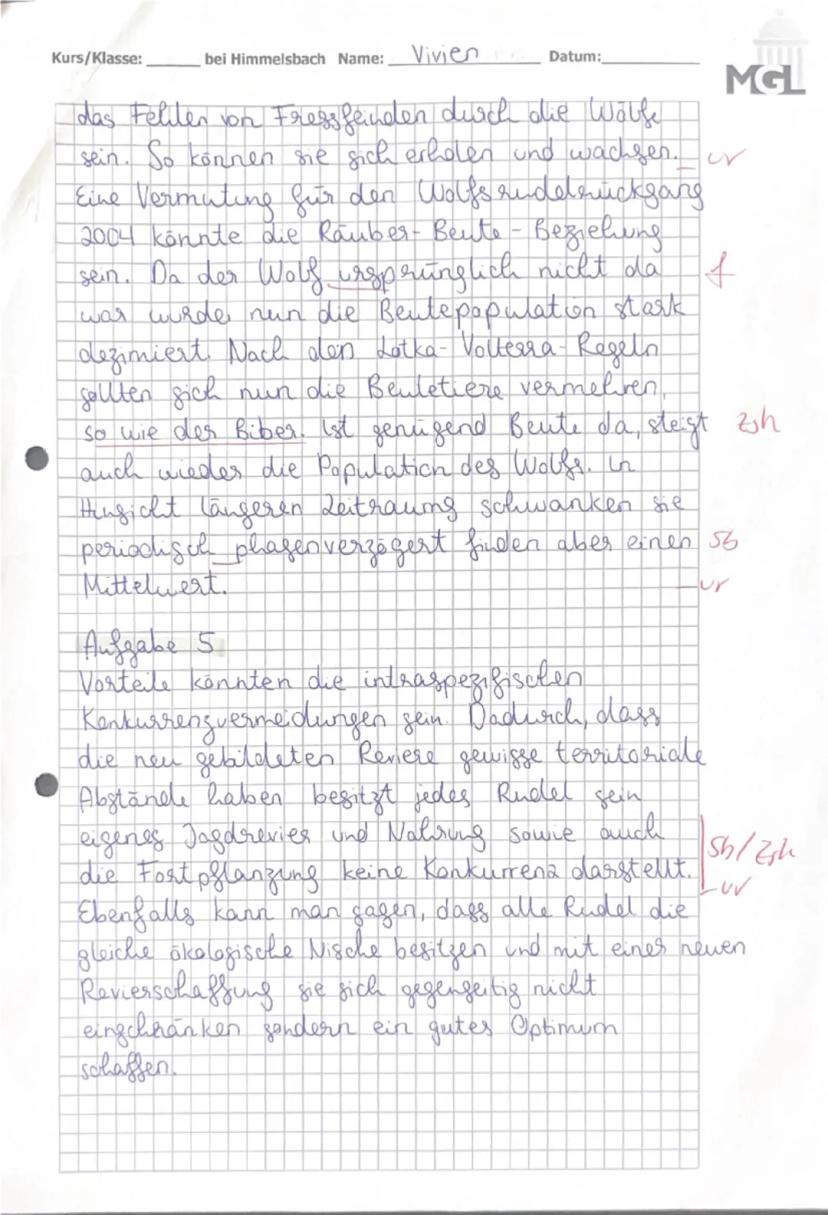 Kurs/Klasse:______ bei Himmelsbach Name: Vivien Datum:______
MGL
das Fehlen von Fressfeinden durch die Wölfe
sein. So können sie sich erholen und wachsen. ur
Eine Vermutung für den Wolfsrudelrückgang
2004 könnte die Räuber-Beute-Beziehung
sein. Da der Wolf ursprünglich nicht da f
war wurde nun die Beutepopulation stark
dezimiert. Nach den Lotka-Volterra-Regeln
sollten sich nun die Beutetiere vermehren,
so wie der Biber. Ist genügend Beute da, steigt Zsh
auch wieder die Population des Wolfs. In
Hinsicht längeren Zeitraums schwanken sie
periodisch phasenverzögert finden aber einen Sb
Mittelwert. ur
Aufgabe 5
Vorteile könnten die intraspezifischen
Konkurrenzvermeidungen sein. Dadurch, dass
die neu gebildeten Reviere gewisse territoriale
Abstände haben besitzt jedes Rudel sein
eigenes Jagdrevier und Nahrung sowie auch
die Fortpflanzung keine Konkurrenz darstellt. Sb/Zsh
ur
Ebenfalls kann man sagen, dass alle Rudel die
gleiche ökologische Nische besitzen und mit einer neuen
Revierschaffung sie sich gegenseitig nicht
einschränken sondern ein gutes Optimum
schaffen.